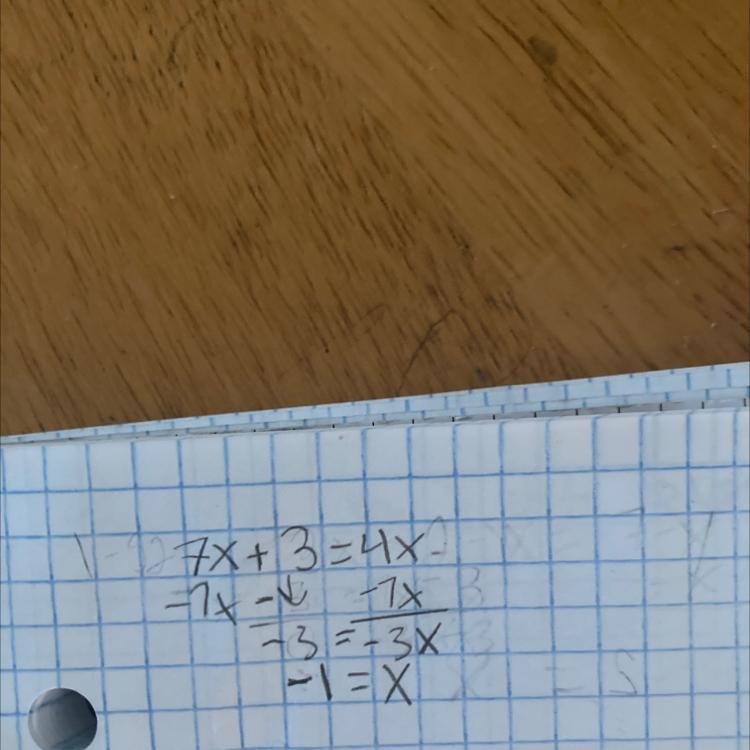 7x + 3 = 4x
-7x -↓ -7x
-3 = -3x
-1 = x